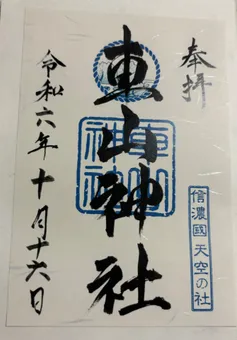 奉拝
東山神社
東山
神社
信濃國 天空の社
令和六年十月十六日